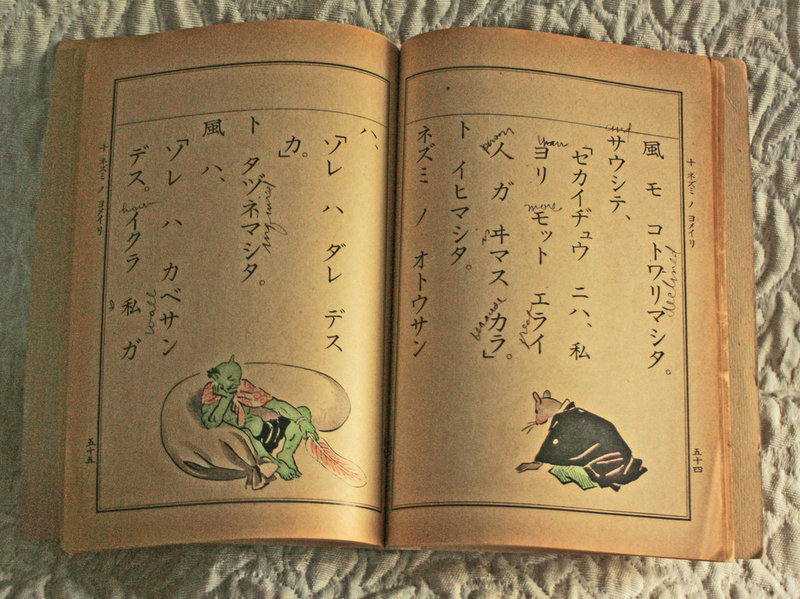 十 ネズミ ノ ヨメイリ
五十四
風 モ コトワリマシタ。
declined
サウシテ、
and
「セカイヂュウ ニハ、私
ヨリ モット エライ
more
great
人 ガ ヰマス カラ。」
person
is
because
ト イヒマシタ。
ネズミ ノ オトウサン
ハ、
「ソレ ハ ダレ デス
カ。」
ト タヅネマシタ。
風 ハ、
「ソレ ハ カベサン
wall
デス。イクラ 私 ガ
how
十 ネズミ ノ ヨメイリ
五十五